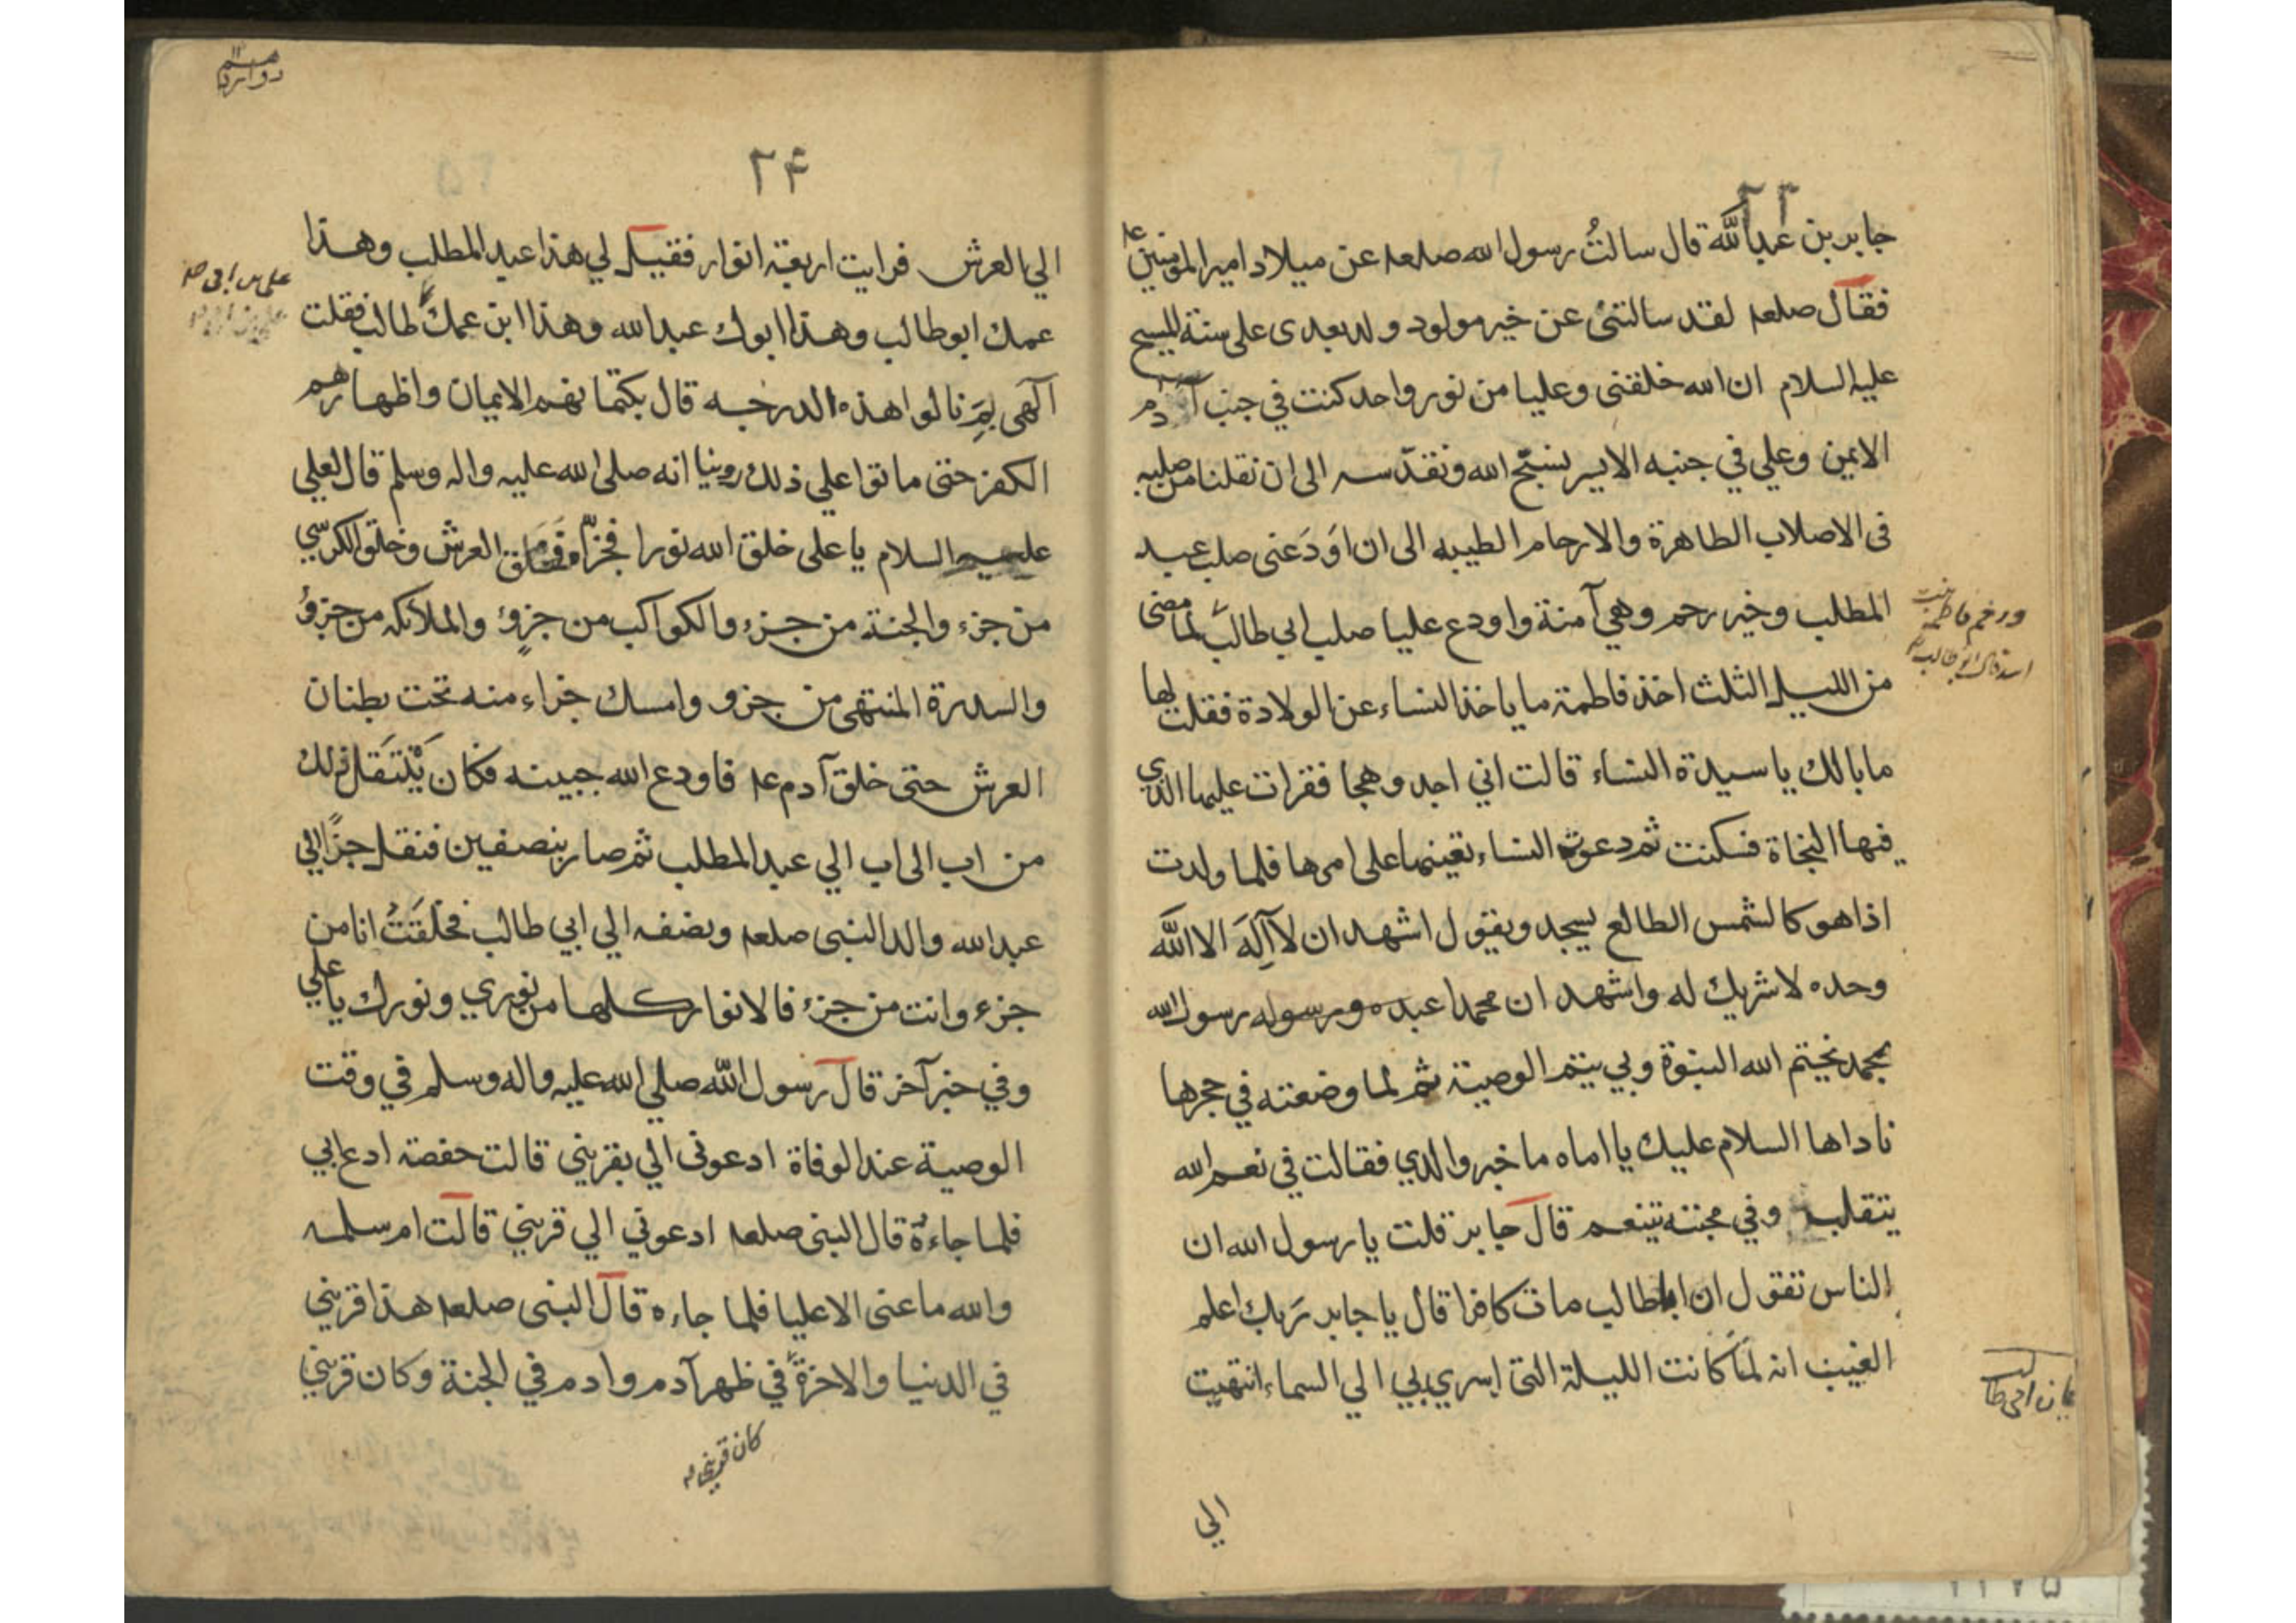 جابر بن عبدالله قال سالتُ رسول الله صلعم عن ميلاد امير المؤمنين ع
فقال صلعم لقد سالتنى عن خير مولود ولد بعدى على سنة المسيح
عليه السلام ان الله خلقنى وعليا من نور واحد كنت في جنب آدم
الايمن وعلي في جنبه الايسر نسبّح الله ونقدّسه الى ان نقلنا من صلبه
فى الاصلاب الطاهرة والارحام الطيبه الى ان اَودَعنى صلب عبد
المطلب وخير رحم وهي آمنة واودع عليا صلب ابي طالب لمّا مضى
من الليل الثلث اخذ فاطمة ما ياخذ النساء عن الولادة فقلت لها
ما بالك يا سيدة النساء قالت اني اجد وهجا فقرات عليها الذي
فيها النجاة فسكنت ثم دعوت النساء تعينها على امرها فلما ولدت
اذا هو كالشمس الطالع يسجد ويقول اشهد ان لا آله الا الله
وحده لا شريك له واشهد ان محمدا عبده ورسوله رسول الله
بمحمد يختم الله النبوة وبي يتم الوصية ثم لما وضعته في حجرها
ناداها السلام عليك يا اماه ما خبر والدي فقالت في نعم الله
يتقلب وفي محبته يتنعم قال جابر قلت يا رسول الله ان
الناس تقول ان ابا طالب مات كافرا قال يا جابر رَبك اعلم
الغيب انه لمّا كانت الليلة التى اسري بي الي السماء انتهيت
الي
۲۴
الي العرش فرايت اربعة انوار فقيل لي هذا عبد المطلب وهذا
عمك ابو طالب وهذا ابوك عبدالله وهذا ابن عمك طالب فقلت
آلهى بِمَ نالوا هذه الدرجه قال بكتمانهم الايمان واظهارهم
الكفر حتى ماتوا علي ذلك روينا انه صلى الله عليه واله وسلم قال لعلي
عليه السلام يا على خلق الله نورا فجزأه فخلق العرش وخلق الكرسي
من جزء والجنة من جزء والكواكب من جزؤ والملائكه من جزؤ
والسدرة المنتهى من جزو وامسك جزاء منه تحت بطنان
العرش حتى خلق آدم ع فاودع الله جبينه فكان يَنْتَقل ذلك
من اب الى اب الي عبد المطلب ثم صار بنصفين فنقل جزًا الي
عبدالله والد النبى صلعم ونصفه الي ابي طالب فخلقتُ انا من
جزء وانت من جزء فالانوار كلها من نوري ونورك يا علي
وفي خبر آخر قال رسول الله صلي الله عليه واله وسلم في وقت
الوصية عند الوفاة ادعونى الي بقريني قالت حفصة ادع ابي
فلما جاءه قال النبى صلعم ادعوني الي قريني قالت ام سلمه
والله ما عنى الا عليا فلما جاءه قال النبى صلعم هذا قريني
في الدنيا والاخرة في ظهر آدم وادم في الجنة وكان قريني
كان قريني